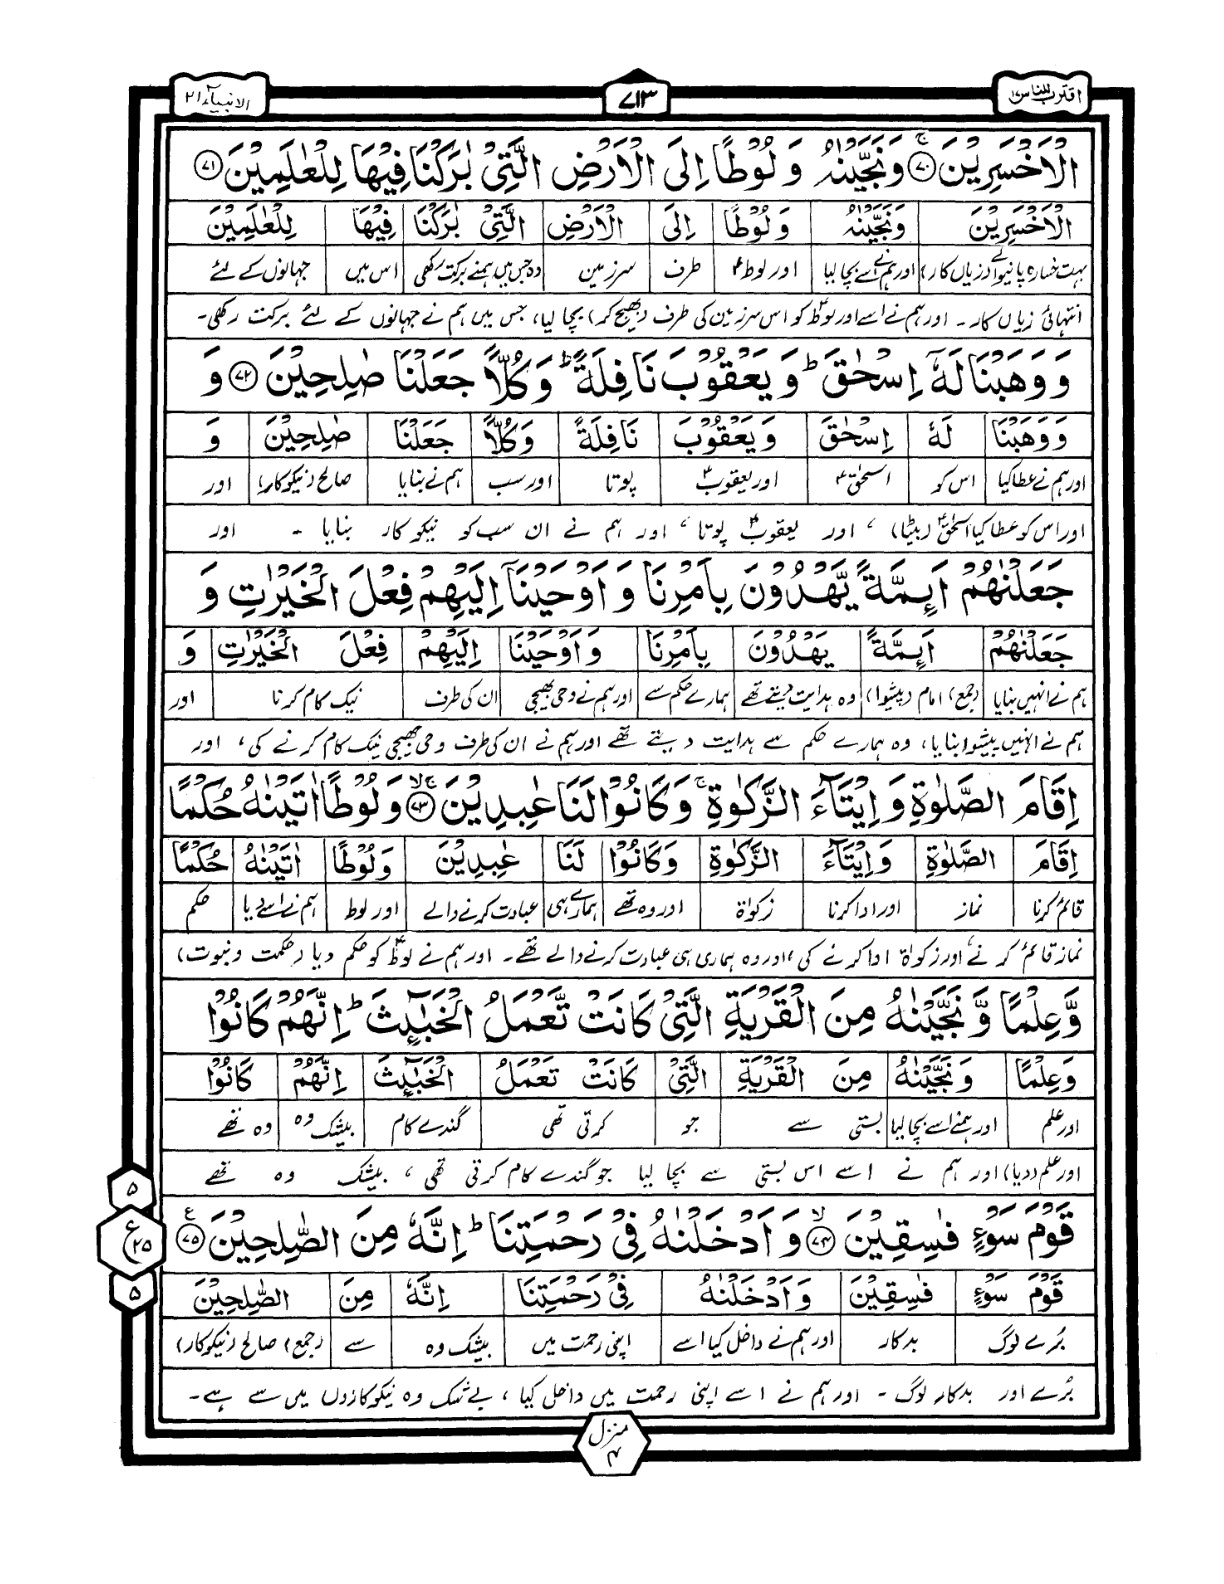 اقترب للناس ١٧
٧١٣
الانبیاء ٢١
الْاَخْسَرِیْنَ ﴿۷۰﴾ۚ وَنَجَّیْنٰهُ وَلُوْطًا اِلَی الْاَرْضِ الَّتِیْ بٰرَكْنَا فِیْهَا لِلْعٰلَمِیْنَ ﴿۷۱﴾
الْاَخْسَرِیْنَ | وَنَجَّیْنٰهُ | وَلُوْطًا | اِلَی | الْاَرْضِ | الَّتِیْ بٰرَكْنَا | فِیْهَا | لِلْعٰلَمِیْنَ
بہت خسارہ پانیوالے (زیاں کار) | اور ہم نے اسے بچا لیا | اور لوطؑ | طرف | سرزمین | وہ جس میں ہمنے برکت رکھی | اس میں | جہانوں کے لئے
انتہائی زیاں کار۔ اور ہم نے اسے اور لوطؑ کو اس سرزمین کی طرف (بھیج کر) بچا لیا، جس میں ہم نے جہانوں کے لئے برکت رکھی۔
وَوَهَبْنَا لَهٗۤ اِسْحٰقَ ؕ وَیَعْقُوْبَ نَافِلَةً ؕ وَكُلًّا جَعَلْنَا صٰلِحِیْنَ ﴿۷۲﴾ وَ
وَوَهَبْنَا | لَهٗ | اِسْحٰقَ | وَیَعْقُوْبَ | نَافِلَةً | وَكُلًّا | جَعَلْنَا | صٰلِحِیْنَ | وَ
اور ہم نے عطا کیا | اس کو | اسحٰقؑ | اور یعقوبؑ | پوتا | اور سب | ہم نے بنایا | صالح (نیکوکار) | اور
اور اس کو عطا کیا اسحٰقؑ (بیٹا)، اور یعقوبؑ پوتا، اور ہم نے ان سب کو نیکو کار بنایا ۔ اور
جَعَلْنٰهُمْ اَىِٕمَّةً یَّهْدُوْنَ بِاَمْرِنَا وَ اَوْحَیْنَاۤ اِلَیْهِمْ فِعْلَ الْخَیْرٰتِ وَ
جَعَلْنٰهُمْ | اَىِٕمَّةً | یَهْدُوْنَ | بِاَمْرِنَا | وَاَوْحَیْنَا | اِلَیْهِمْ | فِعْلَ الْخَیْرٰتِ | وَ
ہم نے انہیں بنایا | (جمع) امام (پیشوا) | وہ ہدایت دیتے تھے | ہمارے حکم سے | اور ہم نے وحی بھیجی | ان کی طرف | نیک کام کرنا | اور
ہم نے انہیں پیشوا بنایا، وہ ہمارے حکم سے ہدایت دیتے تھے اور ہم نے ان کی طرف وحی بھیجی نیک کام کرنے کی، اور
اِقَامَ الصَّلٰوةِ وَ اِیْتَآءَ الزَّكٰوةِ ۚ وَكَانُوْا لَنَا عٰبِدِیْنَ ﴿۷۳﴾ۚۙ وَلُوْطًا اٰتَیْنٰهُ حُكْمًا
اِقَامَ | الصَّلٰوةِ | وَاِیْتَآءَ | الزَّكٰوةِ | وَكَانُوْا | لَنَا | عٰبِدِیْنَ | وَلُوْطًا | اٰتَیْنٰهُ | حُكْمًا
قائم کرنا | نماز | اور ادا کرنا | زکوٰۃ | اور وہ تھے | ہمارے ہی | عبادت کرنے والے | اور لوط | ہم نے اسے دیا | حکم
نماز قائم کرنے اور زکوٰۃ ادا کرنے کی، اور وہ ہماری ہی عبادت کرنے والے تھے۔ اور ہم نے لوطؑ کو حکم دیا (حکمت و نبوت)
وَّعِلْمًا وَّنَجَّیْنٰهُ مِنَ الْقَرْیَةِ الَّتِیْ كَانَتْ تَّعْمَلُ الْخَبٰٓىِٕثَ ؕ اِنَّهُمْ كَانُوْا
وَعِلْمًا | وَنَجَّیْنٰهُ | مِنَ الْقَرْیَةِ | الَّتِیْ | كَانَتْ تَعْمَلُ | الْخَبٰٓىِٕثَ | اِنَّهُمْ | كَانُوْا
اور علم | اور ہمنے اسے بچا لیا | بستی سے | جو | کرتی تھی | گندے کام | بیشک وہ | وہ تھے
اور علم (دیا) اور ہم نے اسے اس بستی سے بچا لیا جو گندے کام کرتی تھی، بیشک وہ تھے
قَوْمَ سَوْءٍ فٰسِقِیْنَ ﴿۷۴﴾ۙ وَ اَدْخَلْنٰهُ فِیْ رَحْمَتِنَا ؕ اِنَّهٗ مِنَ الصّٰلِحِیْنَ ﴿۷۵﴾۠
قَوْمَ سَوْءٍ | فٰسِقِیْنَ | وَاَدْخَلْنٰهُ | فِیْ رَحْمَتِنَا | اِنَّهٗ | مِنَ | الصّٰلِحِیْنَ
بُرے لوگ | بدکار | اور ہم نے داخل کیا اسے | اپنی رحمت میں | بیشک وہ | سے | (جمع) صالح (نیکوکار)
بُرے اور بدکار لوگ ۔ اور ہم نے اسے اپنی رحمت میں داخل کیا، بے شک وہ نیکوکاروں میں سے ہے۔
٥
ع ٢٥
٥
منزل ۴